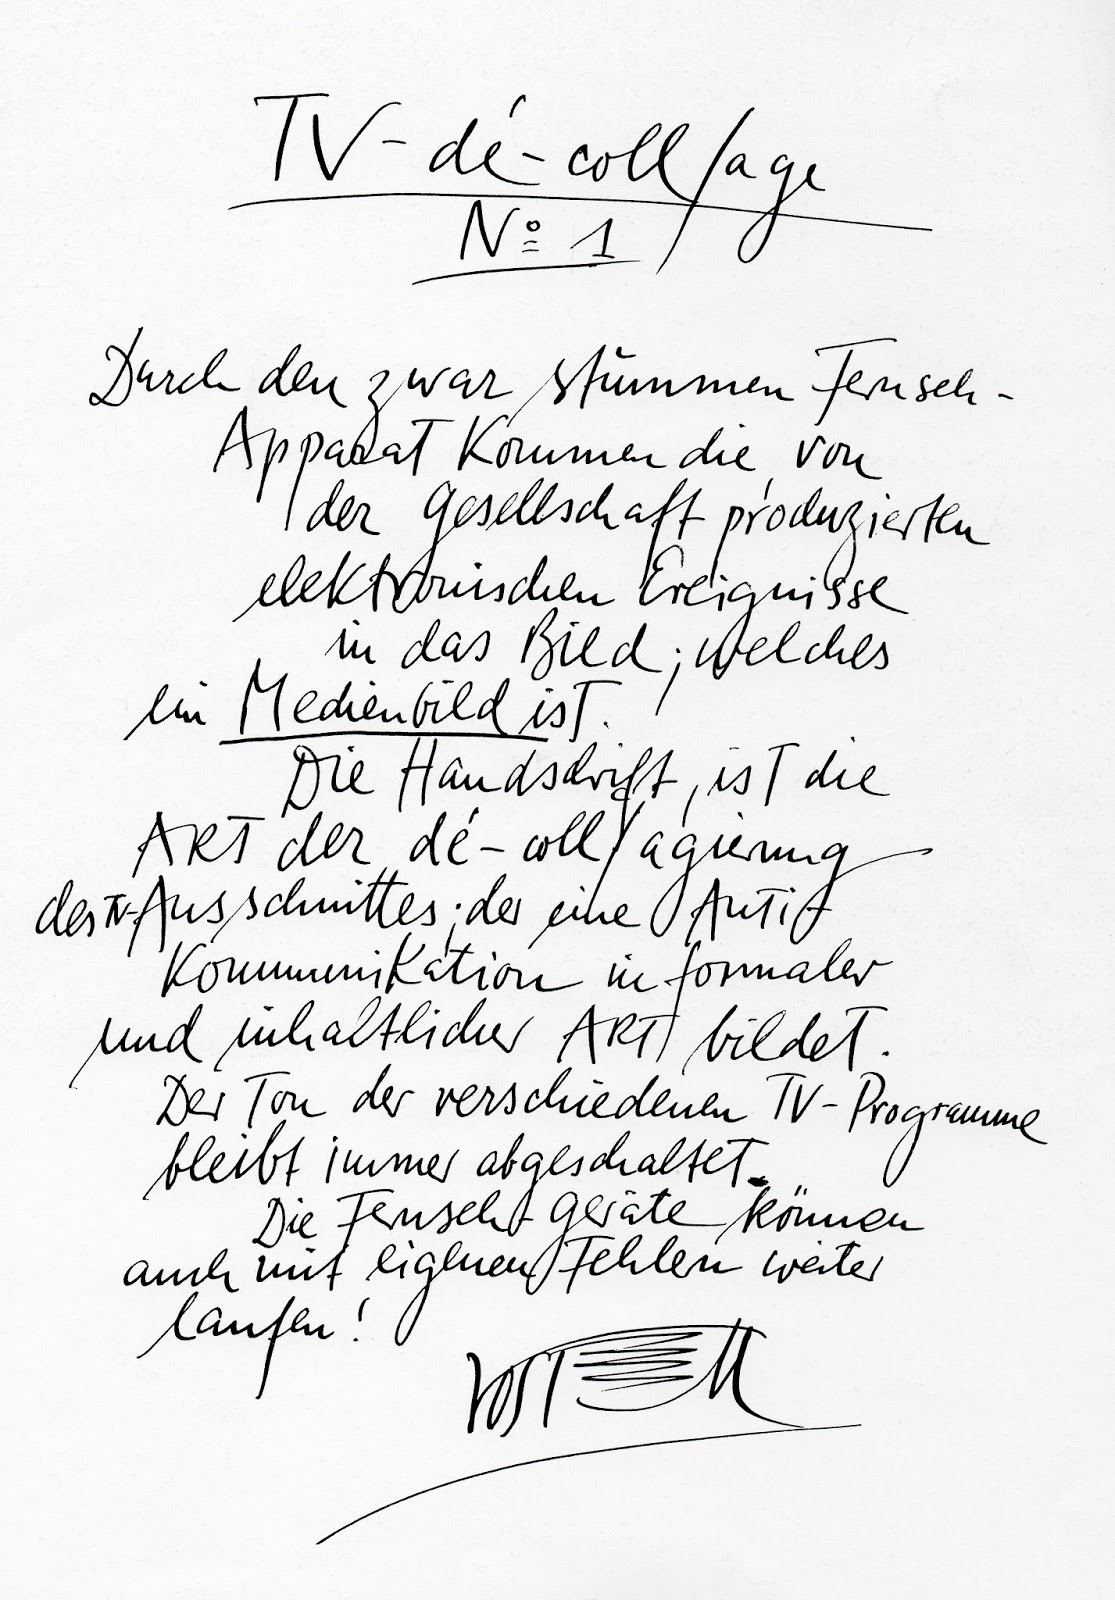 TV-dé-coll/age
Nº 1
Durch den zwar stummen Fernseh-
Apparat kommen die von
der Gesellschaft produzierten
elektronischen Ereignisse
in das Bild; welches
ein Medienbild ist.
Die Handschrift, ist die
ART der dé-coll/agierung
des TV-Ausschnittes; der eine Anti-
Kommunikation in formaler
und inhaltlicher ART bildet.
Der Ton der verschiedenen TV-Programme
bleibt immer abgeschaltet.
Die Fernseh-Geräte können
auch mit eigenen Fehlern weiter
laufen!
Vostell